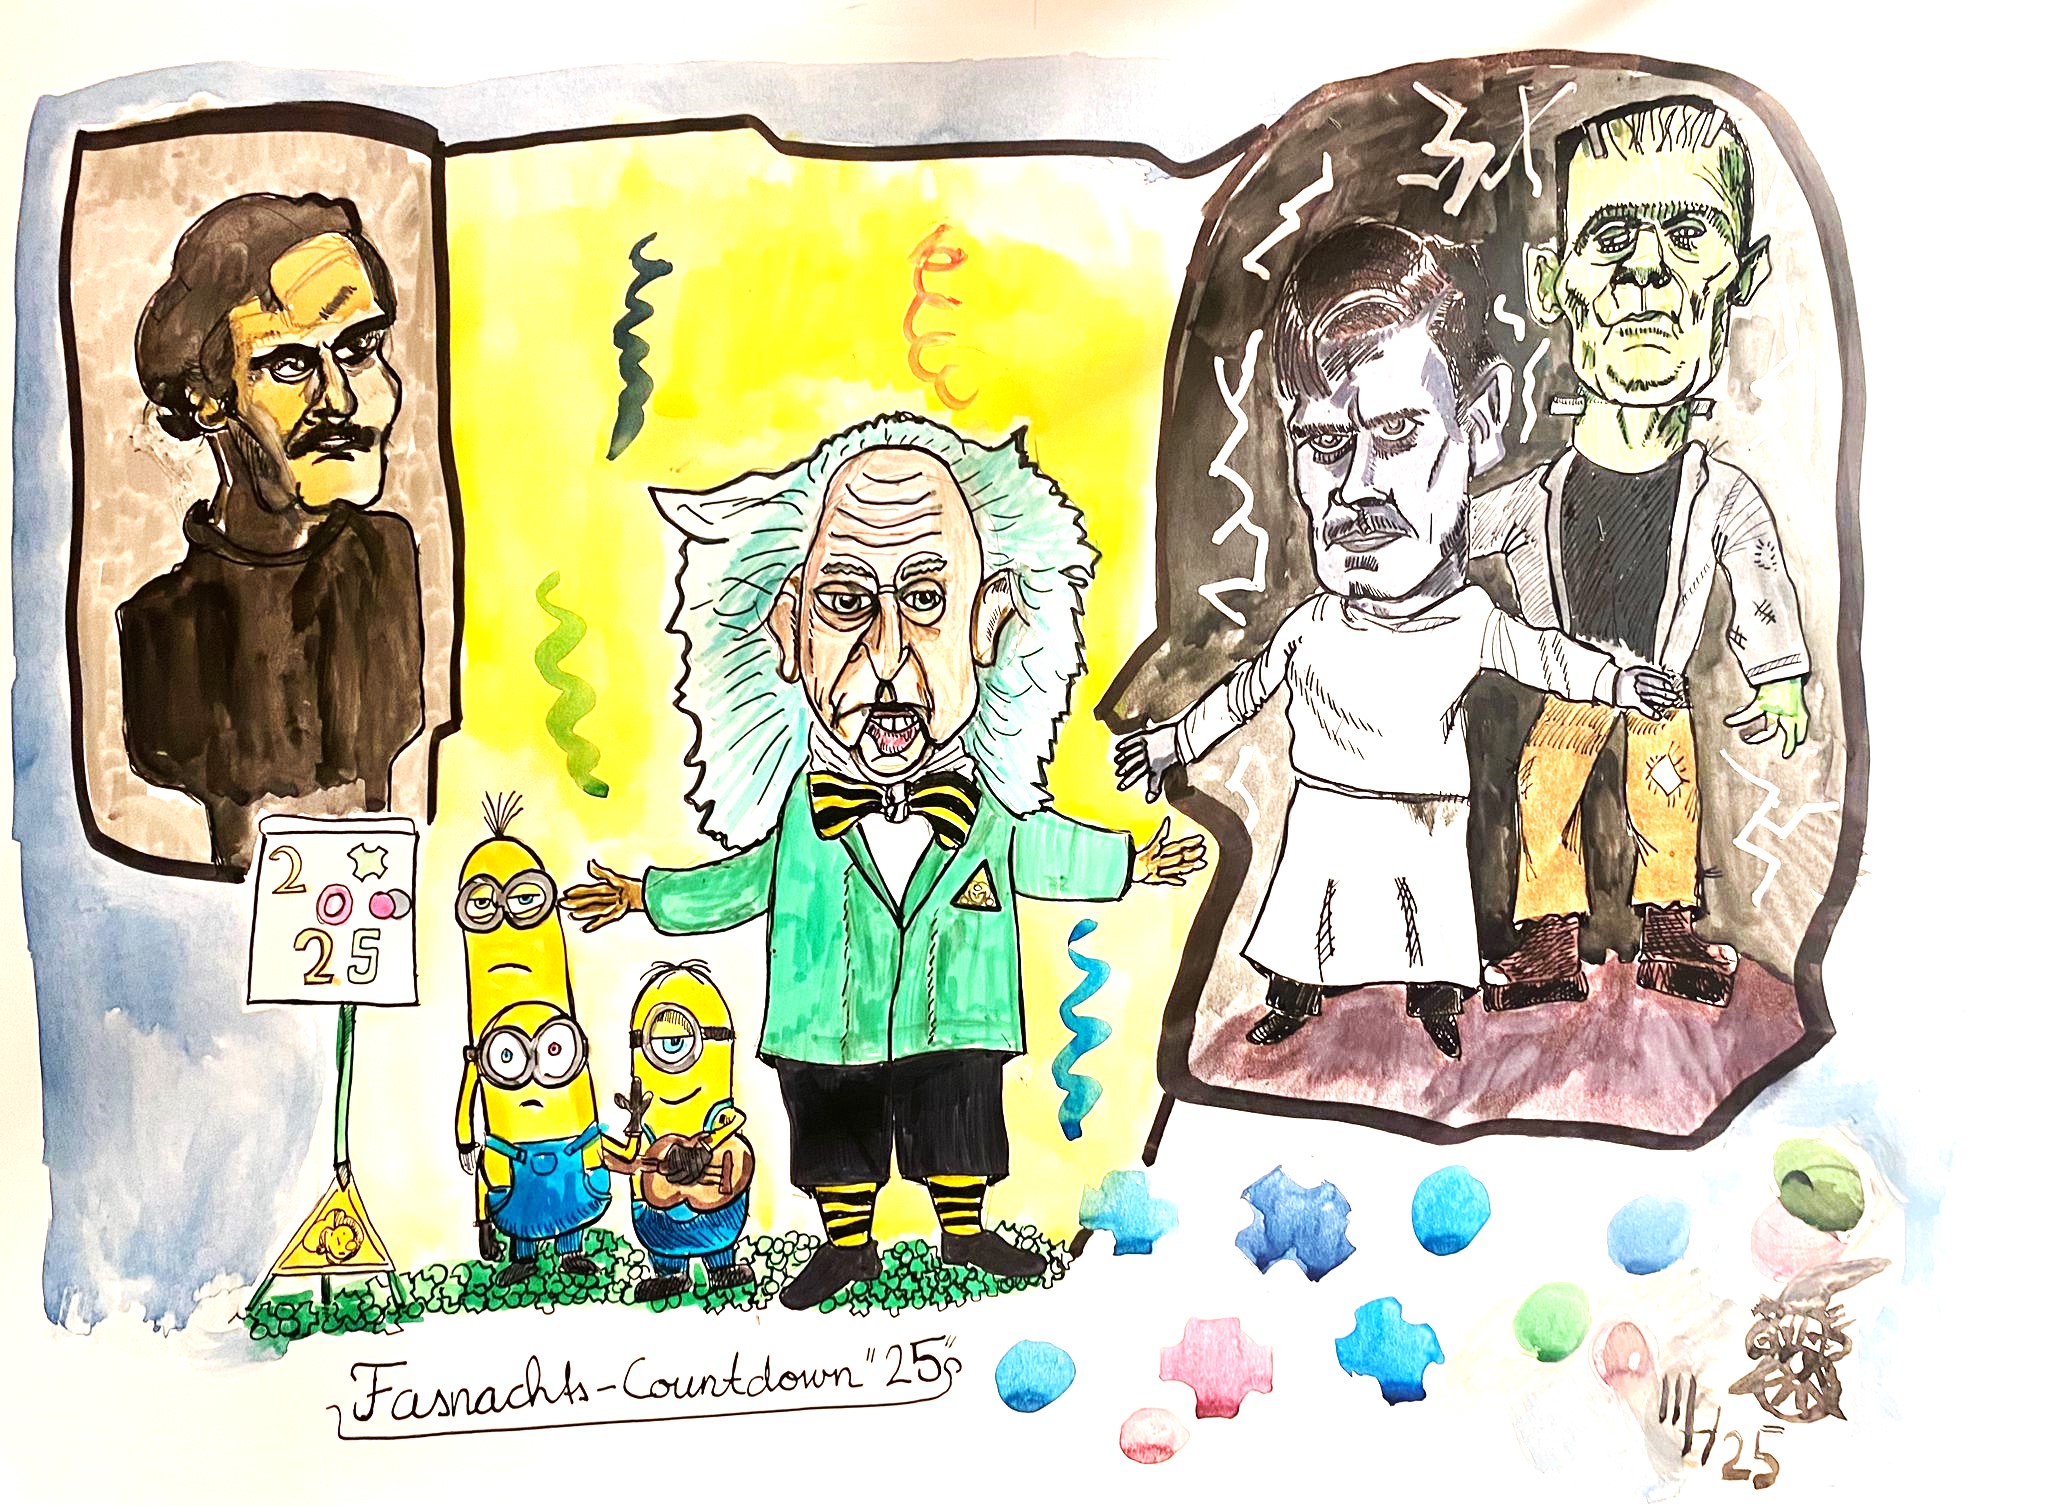 2
25
Fasnachts-Countdown "25"
MH25